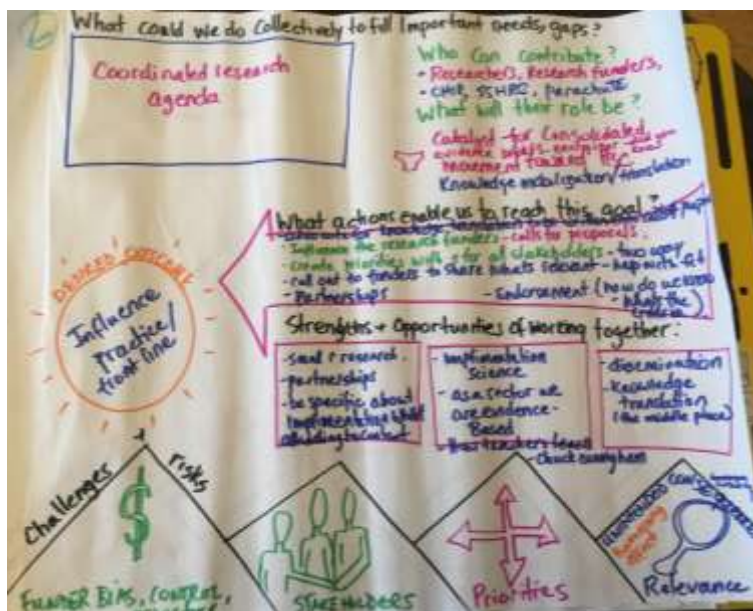 What could we do Collectively to fill Important needs, gaps?
Coordinated research
agenda
Who can contribute?
- Researchers, Research funders,
- CIHR, SSHRC, parachute
What will their role be?
Catalyst for Consolidated
movement toward
Knowledge mobilization/translation
What actions enable us to reach this goal?
Influence the research funders - calls for proposals.
- create priorities with & for all stakeholders - two way
- call out to funders to share what's relevant -
- Partnerships
- Endorsement (how do we know
- what's the
DESIRED OUTCOME
Influence
practice/
front line
Strengths + Opportunities of Working together:
- small r research.
- partnerships
- be specific about
implementation while
- Implementation
Science
- as a sector we
are evidence-
Based
- dissemination
- Knowledge
translation
(the middle place)
Challenges + risks
FUNDER BIAS, CONTROL,
STAKEHOLDERS
Priorities
UNINTENDED CONSEQUENCES
Relevance